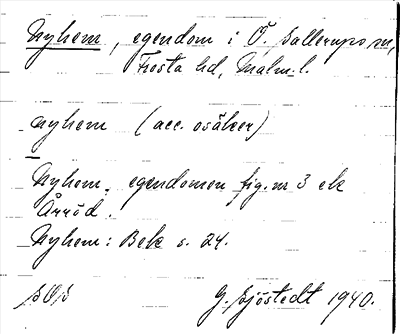 Nyhem, egendom i Ö. Sallerups sn,
Frosta hd, Malm. l.
nyhem (acc. osäker)
Nyhem, egendomen fig. nr 3 ek
Årröd.
Nyhem: Bek s. 24.
SOS G. Sjöstedt 1940.